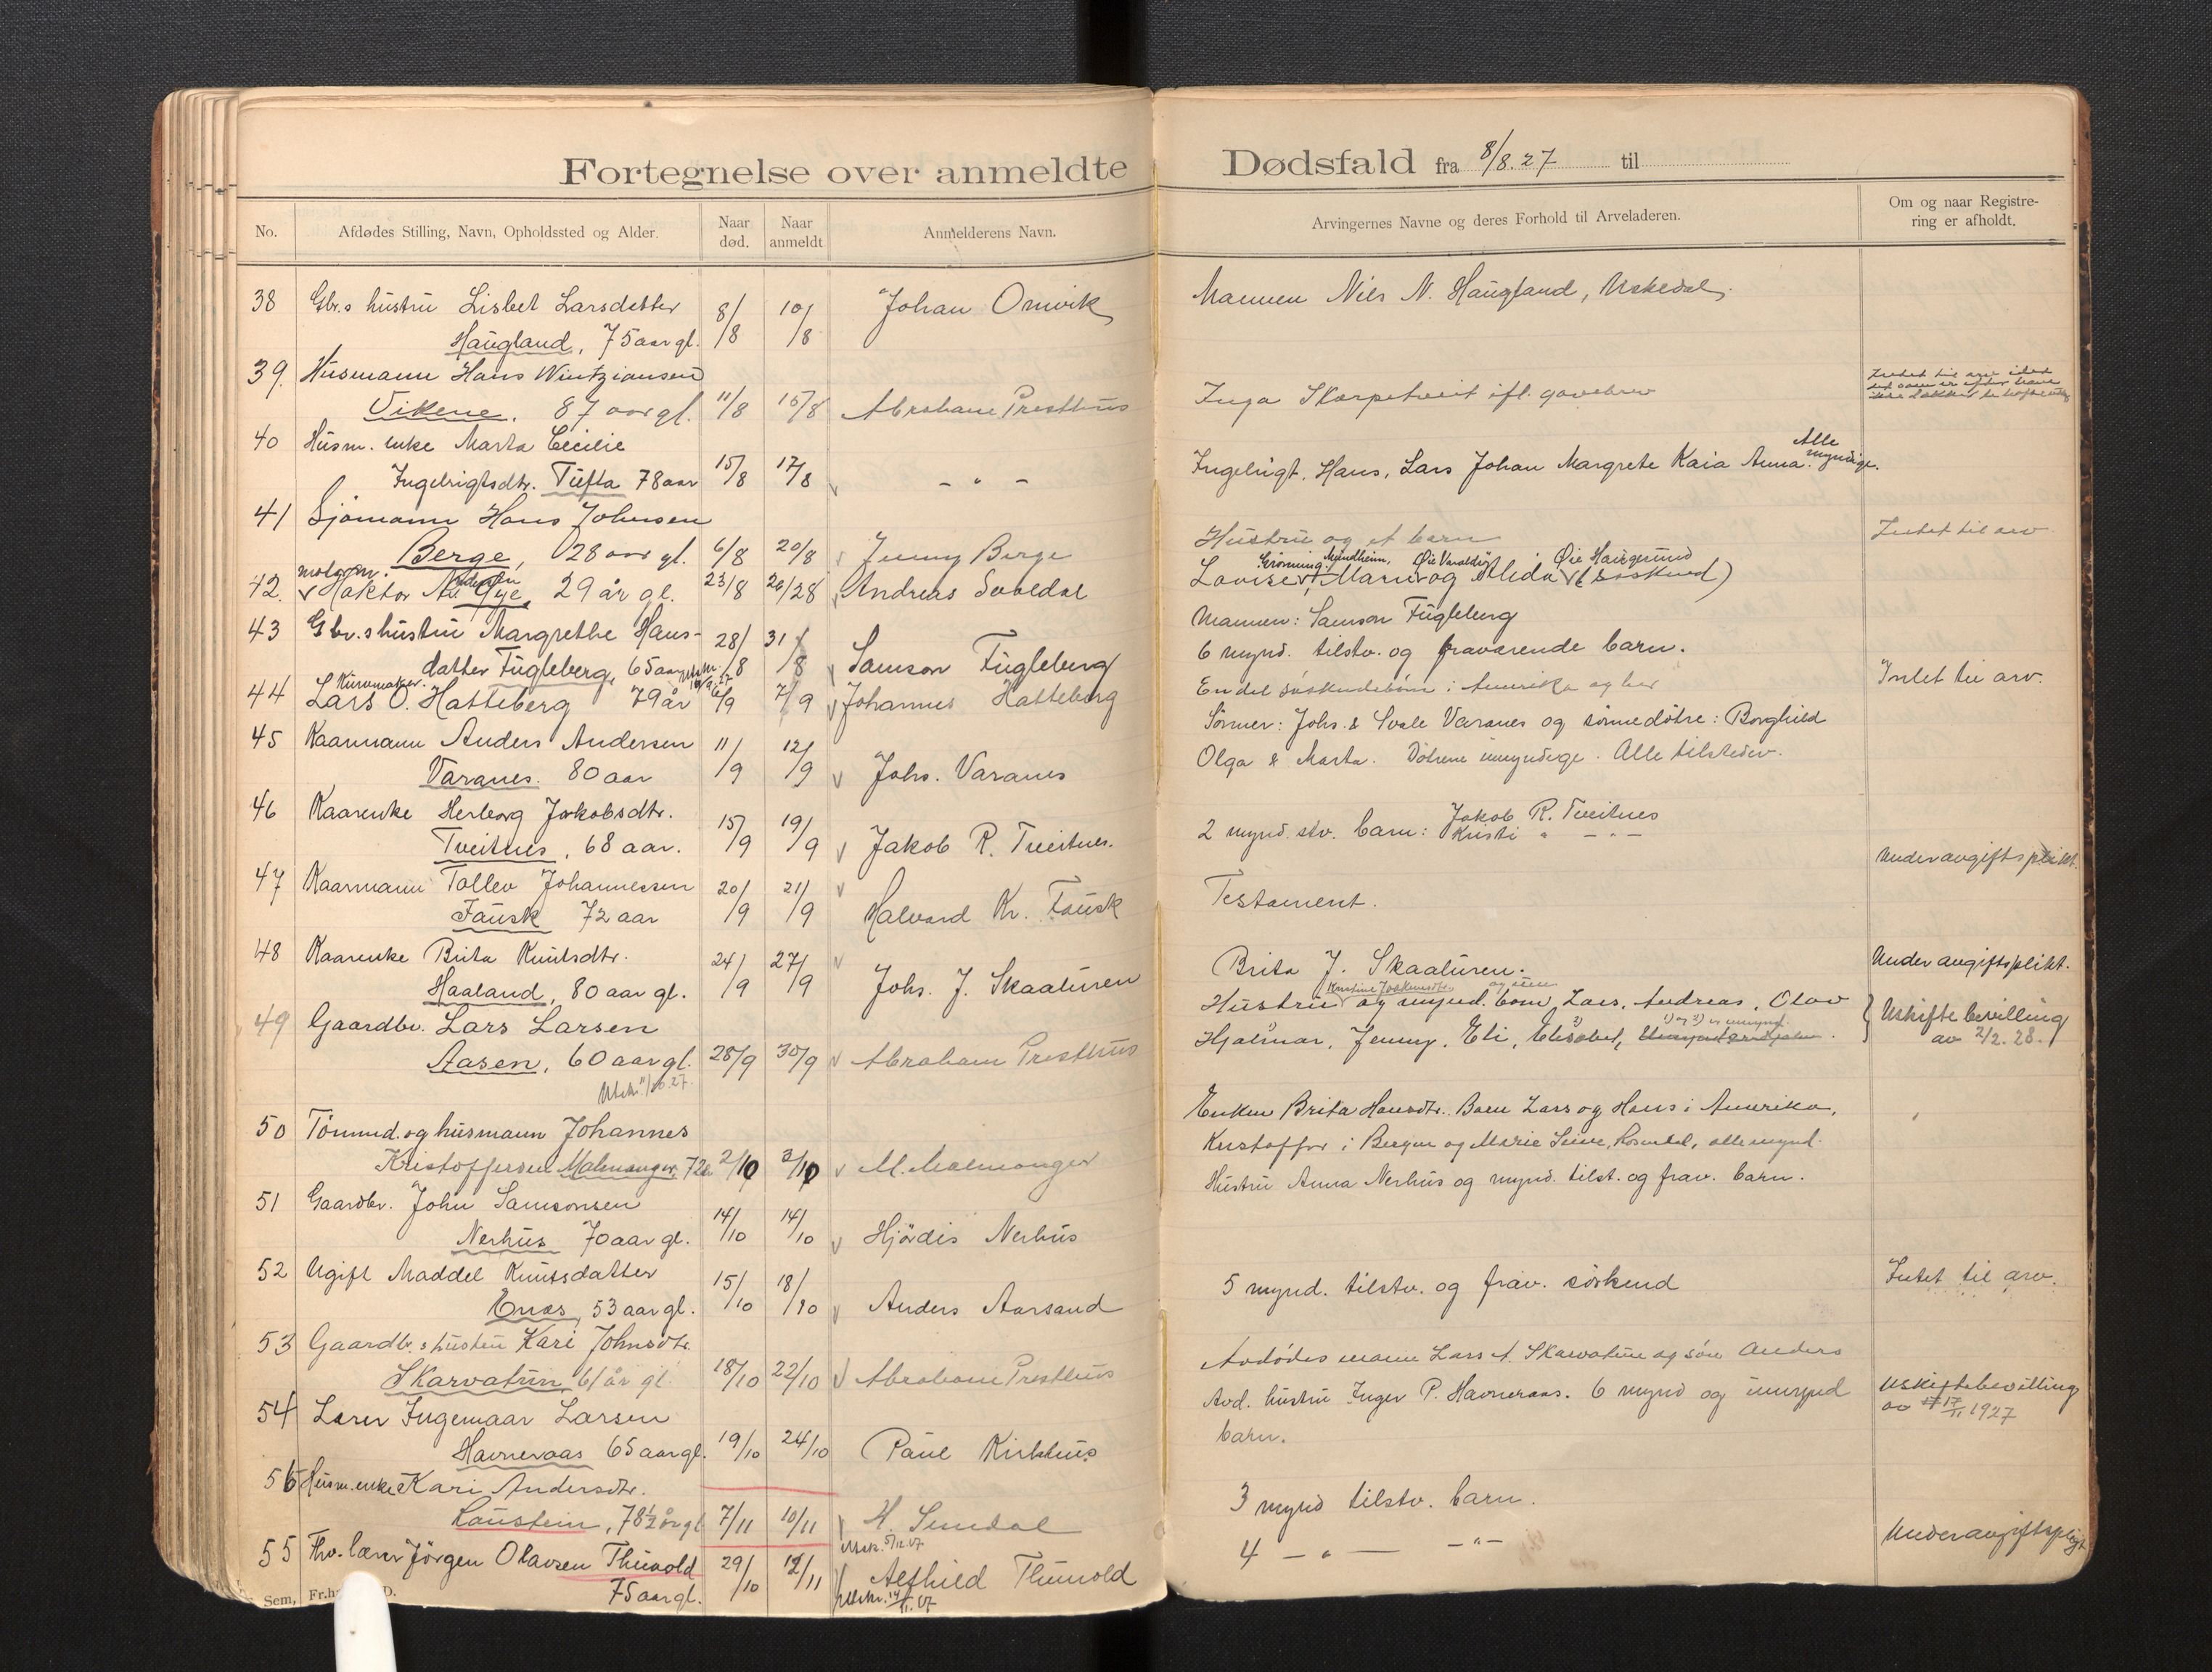 Fortegnelse over anmeldte Dødsfald fra 8/8.27 til
No.
Afdødes Stilling, Navn, Opholdssted og Alder.
Naar død.
Naar anmeldt
Anmelderens Navn.
Arvingernes Navne og deres Forhold til Arveladeren.
Om og naar Registre-
ring er afholdt.
38 Gbr.s hustru Lisbet Larsdatter 8/8 10/8 Johan Omvik Mannen Niels N. Haugland, Uskedal.
Haugland, 75 aar gl.
39. Husmann Hans Wintziansen
Vikene. 87 aar gl. 11/8 15/8 Abraham Presthus Inga Skarpetveit ifl. gavebrev
40 Husm. enke Marta Cecilie
Ingelrigtsdtr. Tufta 78 aar 15/8 17/8 – " – Ingebrigt. Hans, Lars Johan Margrete Kaia Anna. Alle myndige.
41 Sjømann Hans Johnsen
Berge, 28 aar gl. 6/8 20/8 Jenny Berge Hustru og et barn Intet til arv
Grønning. Myndheim, Øie Varaldsø Øie Haugesund
42. Haktor Andersen Øye, 29 år gl. 23/8 26/28 Andreas Valedal Lovise, Marie og Alida (søskend)
43 Gbr.s hustru Margrethe Hans- 28/8 31/8 Samson Fugleberg Mannen: Samson Fugleberg
datter Fugleberg, 65 aar 6 mynd. tilstv. og fraværende barn.
Kurvmaker.
44 Lars O. Hatteberg 79 år 6/9 7/9 Johannes Hatteberg En del søskendebørn i Amerika og her Intet til arv.
45 Kaarmann Anders Andersen 11/9 12/9 Johs. Varanes Sønner: Johs. & Svale Varanes og sønnedøtre: Borghild
Varanes. 80 aar Olga & Marta. Døtrene umyndige. Alle tilstede.
46 Kaarenke Herborg Jakobsdtr.
Tveitnes, 68 aar. 15/9 19/9 Jakob R. Tveitnes. 2 mynd. stv. barn: Jakob R. Tveitnes
Kristi " – " –
Under avgiftsplikt.
47 Kaarmann Tollev Johannessen 20/9 21/9 Halvard Kr. Fausk Testament.
Fausk 72 aar
48 Kaarenke Brita Knutsdtr. 24/9 27/9 Johs. J. Skaaluren Brita J. Skaaluren. Under avgiftsplikt.
Haaland, 80 aar gl.
49 Gaardbr. Lars Larsen Hustru og mynd. barn, Lars, Andreas, Olav
Aasen, 60 aar gl. 28/9 30/9 Abraham Presthus Hjalmar, Jenny, Eli, Elisabet, Uskifte bevilling
av 2/2. 28.
Utskr. 11/10.27.
50 Tømmd. og husmann Johannes Enken Brita Hansdtr. Barn Lars og Hans i Amerika,
Kristoffersen Malmanger, 72 2/10 3/10 M. Malmanger Kristoffer i Bergen og Marie Seim, Rosendal, alle mynd.
51 Gaardbr. John Samsonsen Hustru Anna Nerhus og mynd. tilst. og frav. barn.
Nerhus 70 aar gl. 14/10 14/10 Hjørdis Nerhus
52 Ugift Maddel Knutsdatter 5 mynd. tilstv. og frav. søskend Intet til arv.
Enæs, 53 aar gl. 15/10 18/10 Anders Aarsand
53 Gaardbr.s hustru Kari Johnsdtr. Avdødes mann Lars A. Skarvatun og søn Anders
Skarvatun 61 år gl. 18/10 22/10 Abraham Presthus
54 Lærer Ingemaar Larsen Avd. hustru Inger P. Havneraas. 6 mynd og umynd barn. Uskiftebevilling
av 17/11 1927
Havneraas 65 aar gl. 19/10 24/10 Paul Kirkhus
56 Husm. enke Kari Andersdtr. 3 mynd tilstv. barn.
Laustein, 78½ år gl 7/11 10/11 H. Sundal
Utskr. 5/12.27
55 Fhv. lærer Jørgen Olavsen Thuvold 29/10 12/11 Alfhild Thuvold 4 – " – – " – Under avgiftspligt
75 aar gl. Utskr. 14/11.27
Sem,